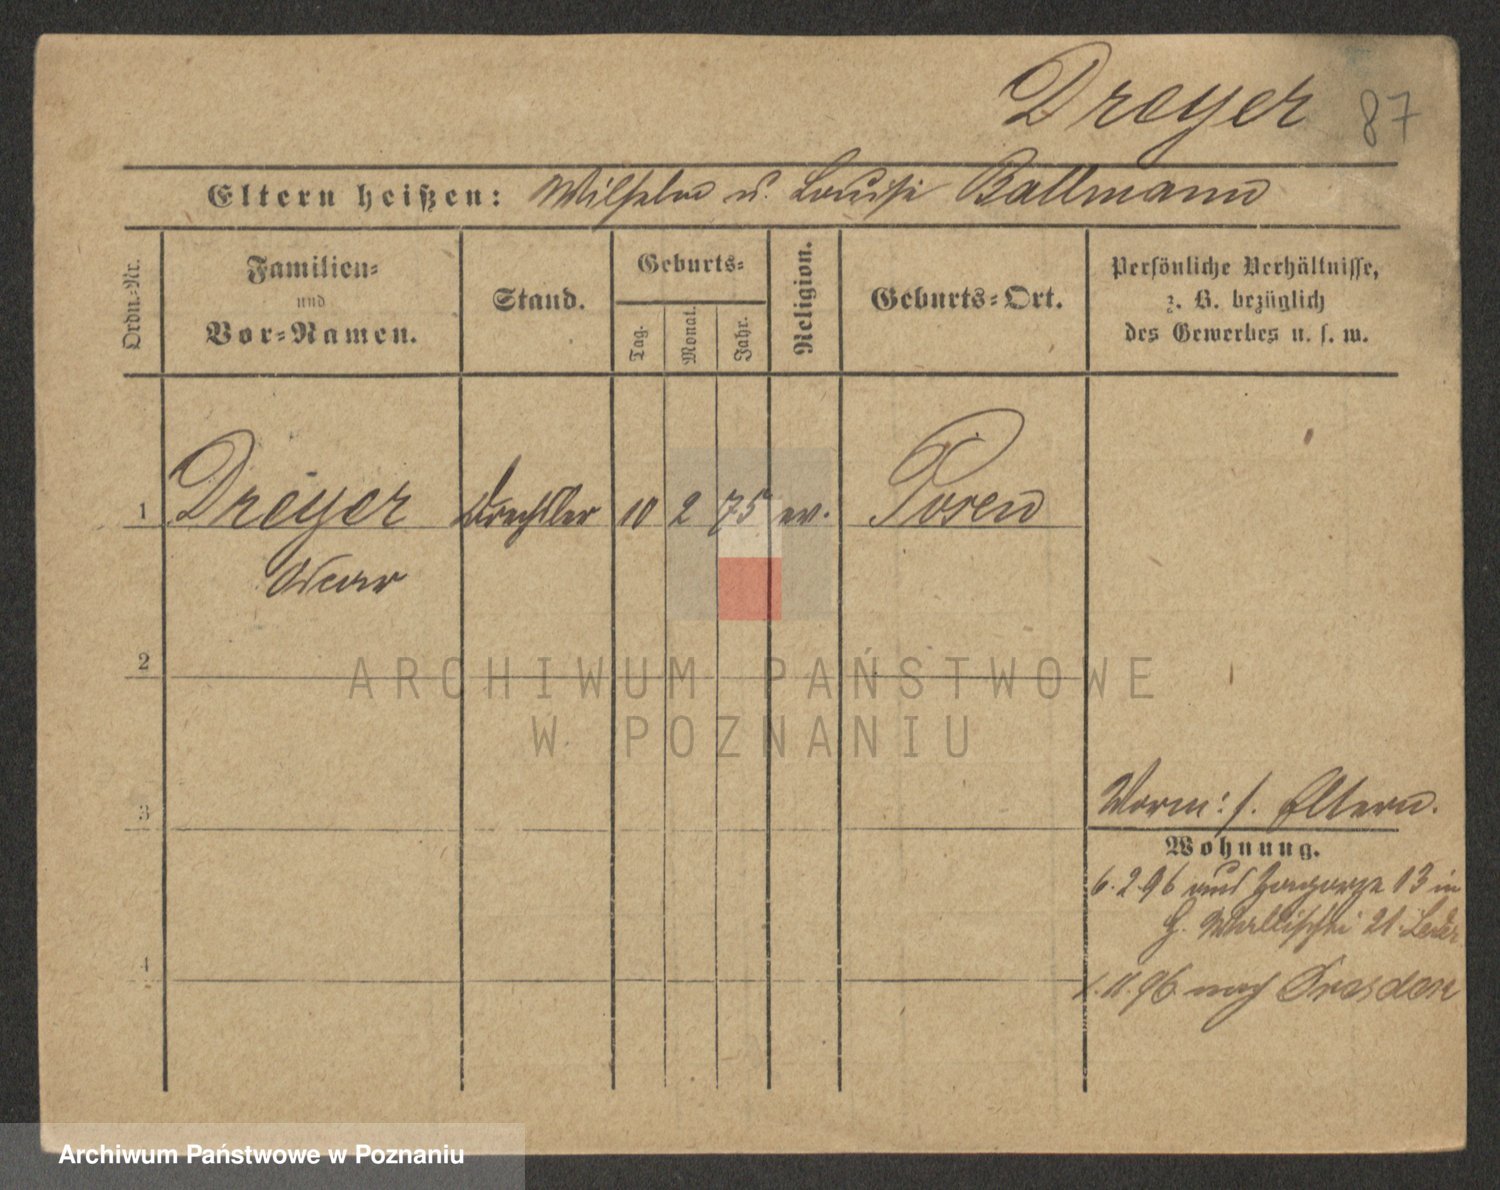 Dreyer 87
Eltern heißen: Wilhelm u. Louise Ballmann
Ordn.-Nr.
Familien-
und
Vor-Namen.
Stand.
Geburts-
Tag.
Monat.
Jahr.
Religion.
Geburts-Ort.
Persönliche Verhältnisse,
z. B. bezüglich
des Gewerbes u. s. w.
1 Dreyer Drechsler 10 2 75 ev. Posen
Oscar
2
ARCHIWUM PAŃSTWOWE
W POZNANIU
3
Vorm: s. Eltern.
Wohnung.
6.2.96 aus Zagorze 13 in
H. Wallischei 21
4
11.96 nach Dresden
Archiwum Państwowe w Poznaniu